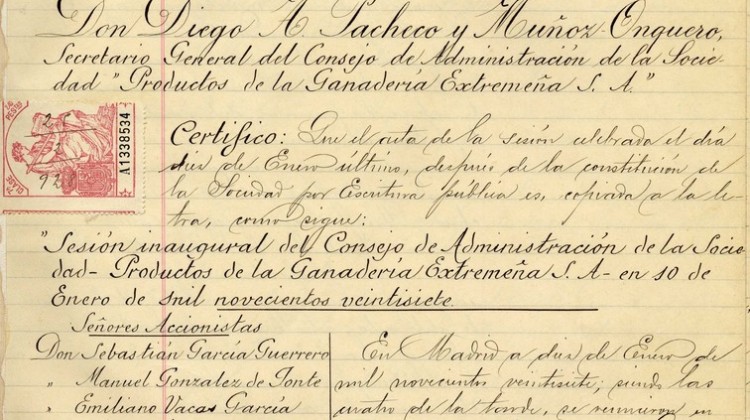 Don Diego A. Pacheco y Muñoz-Onguero,
Secretario General del Consejo de Administración de la Socie-
dad "Productos de la Ganadería Extremeña S. A."
A1338534
Certifico: Que el acta de la sesión celebrada el día
diez de Enero último, después de la constitución de
la Sociedad por Escritura pública es, copiada a la le-
tra, como sigue:
"Sesión inaugural del Consejo de Administración de la Socie-
dad- Productos de la Ganadería Extremeña S. A- en 10 de
Enero de mil novecientos veintisiete.
Señores Accionistas
Don Sebastián García Guerrero
" Manuel Gonzalez de Jonte
" Emiliano Vacas García
En Madrid a diez de Enero de
mil novecientos veintisiete; siendo las
cuatro de la tarde, se reunieron en